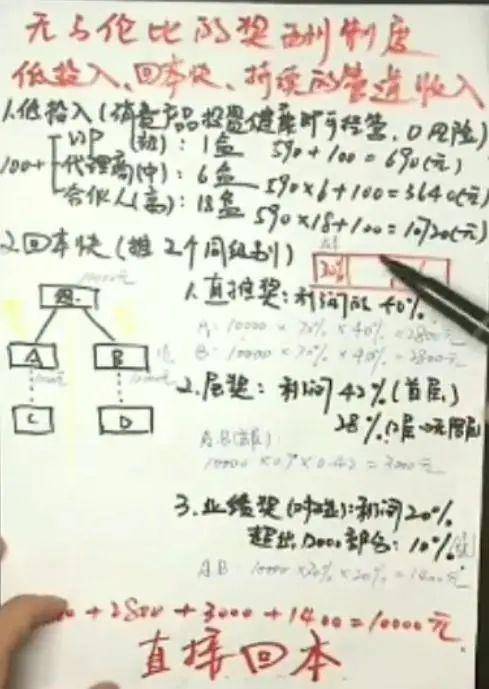 无与伦比的奖励制度
低投入、回本快、持续的管道收入
1.低投入(消费产品投资健康即可经营,0风险)
VIP (初): 1盒 590+100=690(元)
100+ 代理商(中): 6盒 590×6+100=3640(元)
合伙人(高): 18盒 590×18+100=10720(元)
2.回本快(推2个同级别)
10000元
30%
1.直推奖:利润的40%
A: 10000×70%×40%=2800元
B: 10000×70%×40%=2800元
A B
C D
2.层奖: 利润42%(首层)
28%
A.B(首层):
10000×0.7×0.42=3000元
3.业绩奖(对碰):利润20%
超出 部分:10%
A.B 10000×70%×20%=1400元
+2800+3000+1400=10000元
直接回本